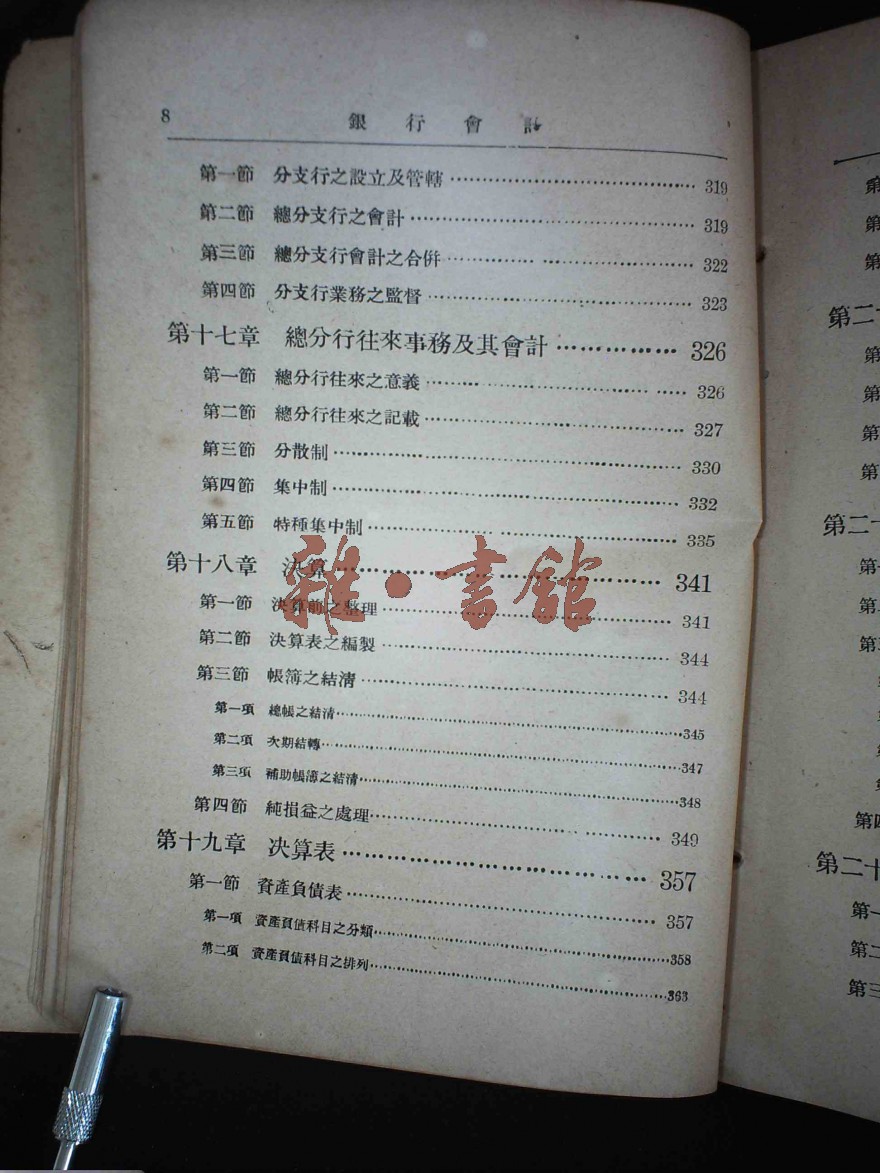 8 銀行會計
第一節 分支行之設立及管轄 319
第二節 總分支行之會計 319
第三節 總分支行會計之合併 322
第四節 分支行業務之監督 323
第十七章 總分行往來事務及其會計 326
第一節 總分行往來之意義 326
第二節 總分行往來之記載 327
第三節 分散制 330
第四節 集中制 332
第五節 特種集中制 335
第十八章 決算 341
第一節 決算前之整理 341
第二節 決算表之編製 344
第三節 帳簿之結清 344
第一項 總帳之結清 345
第二項 次期結轉 347
第三項 補助帳簿之結清 348
第四節 純損益之處理 349
第十九章 決算表 357
第一節 資產負債表 357
第一項 資產負債科目之分類 358
第二項 資產負債科目之排列 363
雜·書館